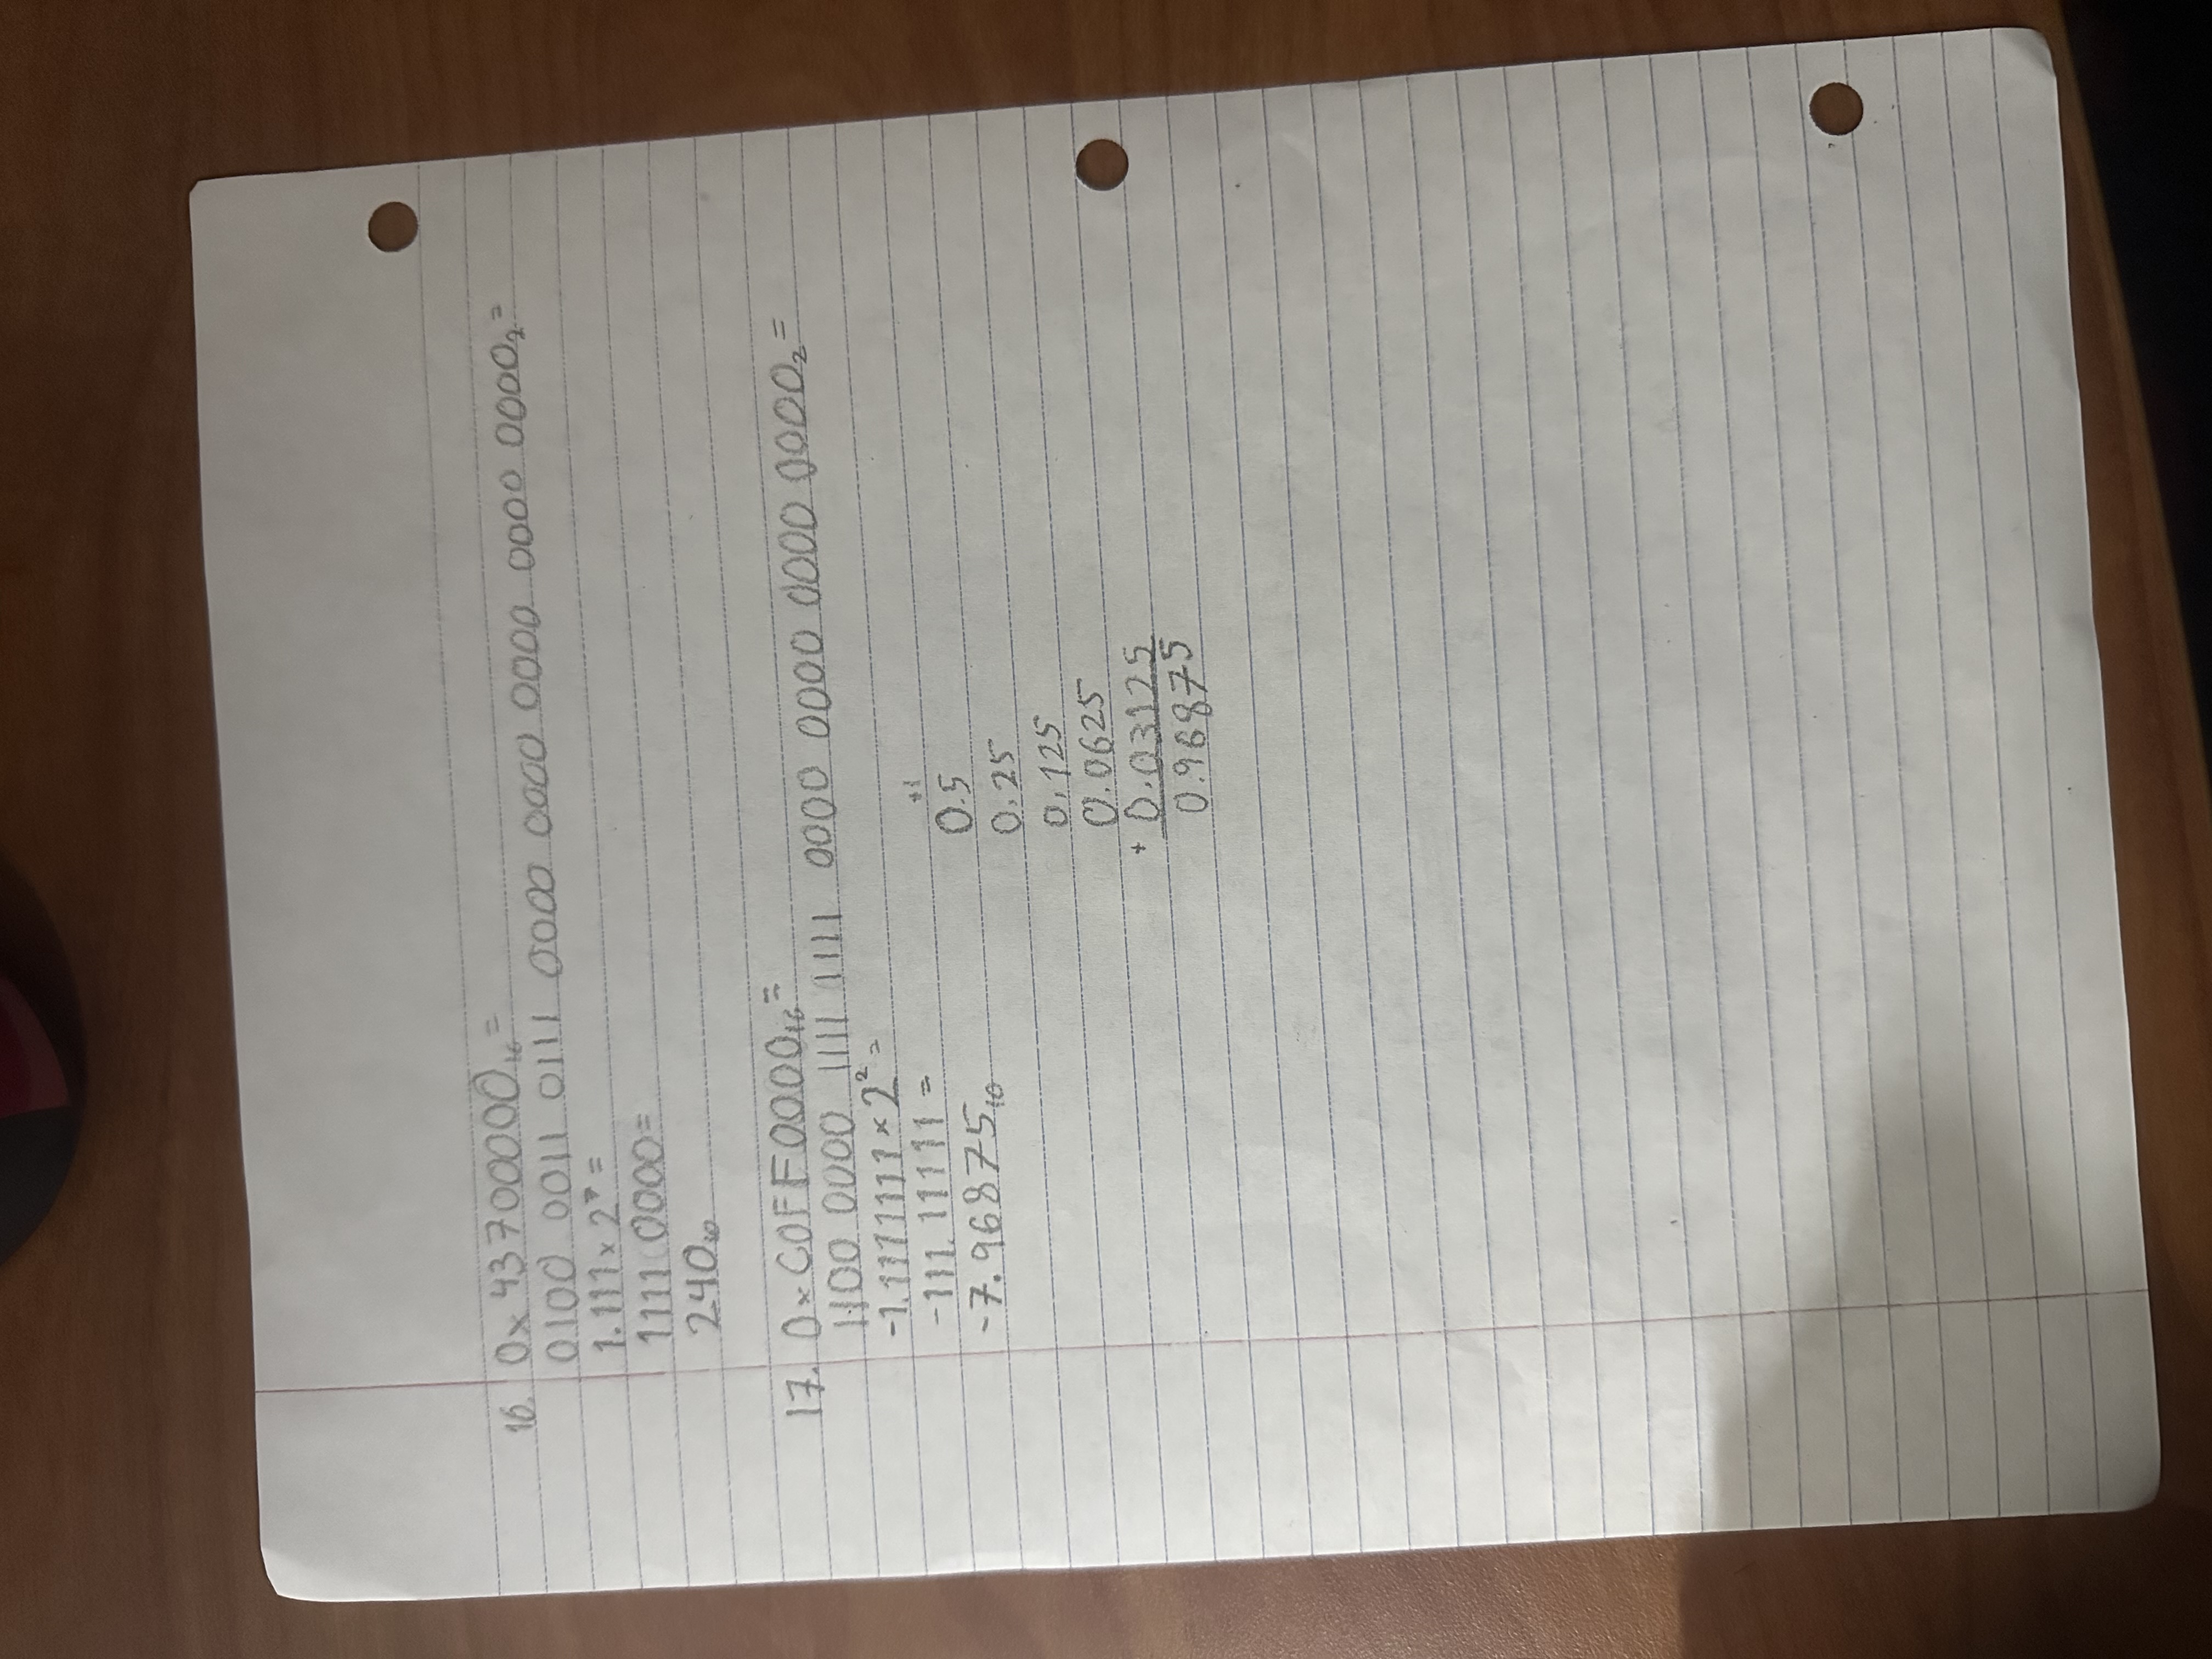 16. 0x43700000₁₆=
0100 0011 0111 0000 0000 0000 0000 0000₂=
1.111×2⁷=
1111 0000=
240₁₀
17. 0xC0FF0000₁₆=
1100 0000 1111 1111 0000 0000 0000 0000₂=
-1.1111111×2²=
-111.11111=
-7.96875₁₀
+1
0.5
0.25
0.125
0.0625
+ 0.03125
0.96875